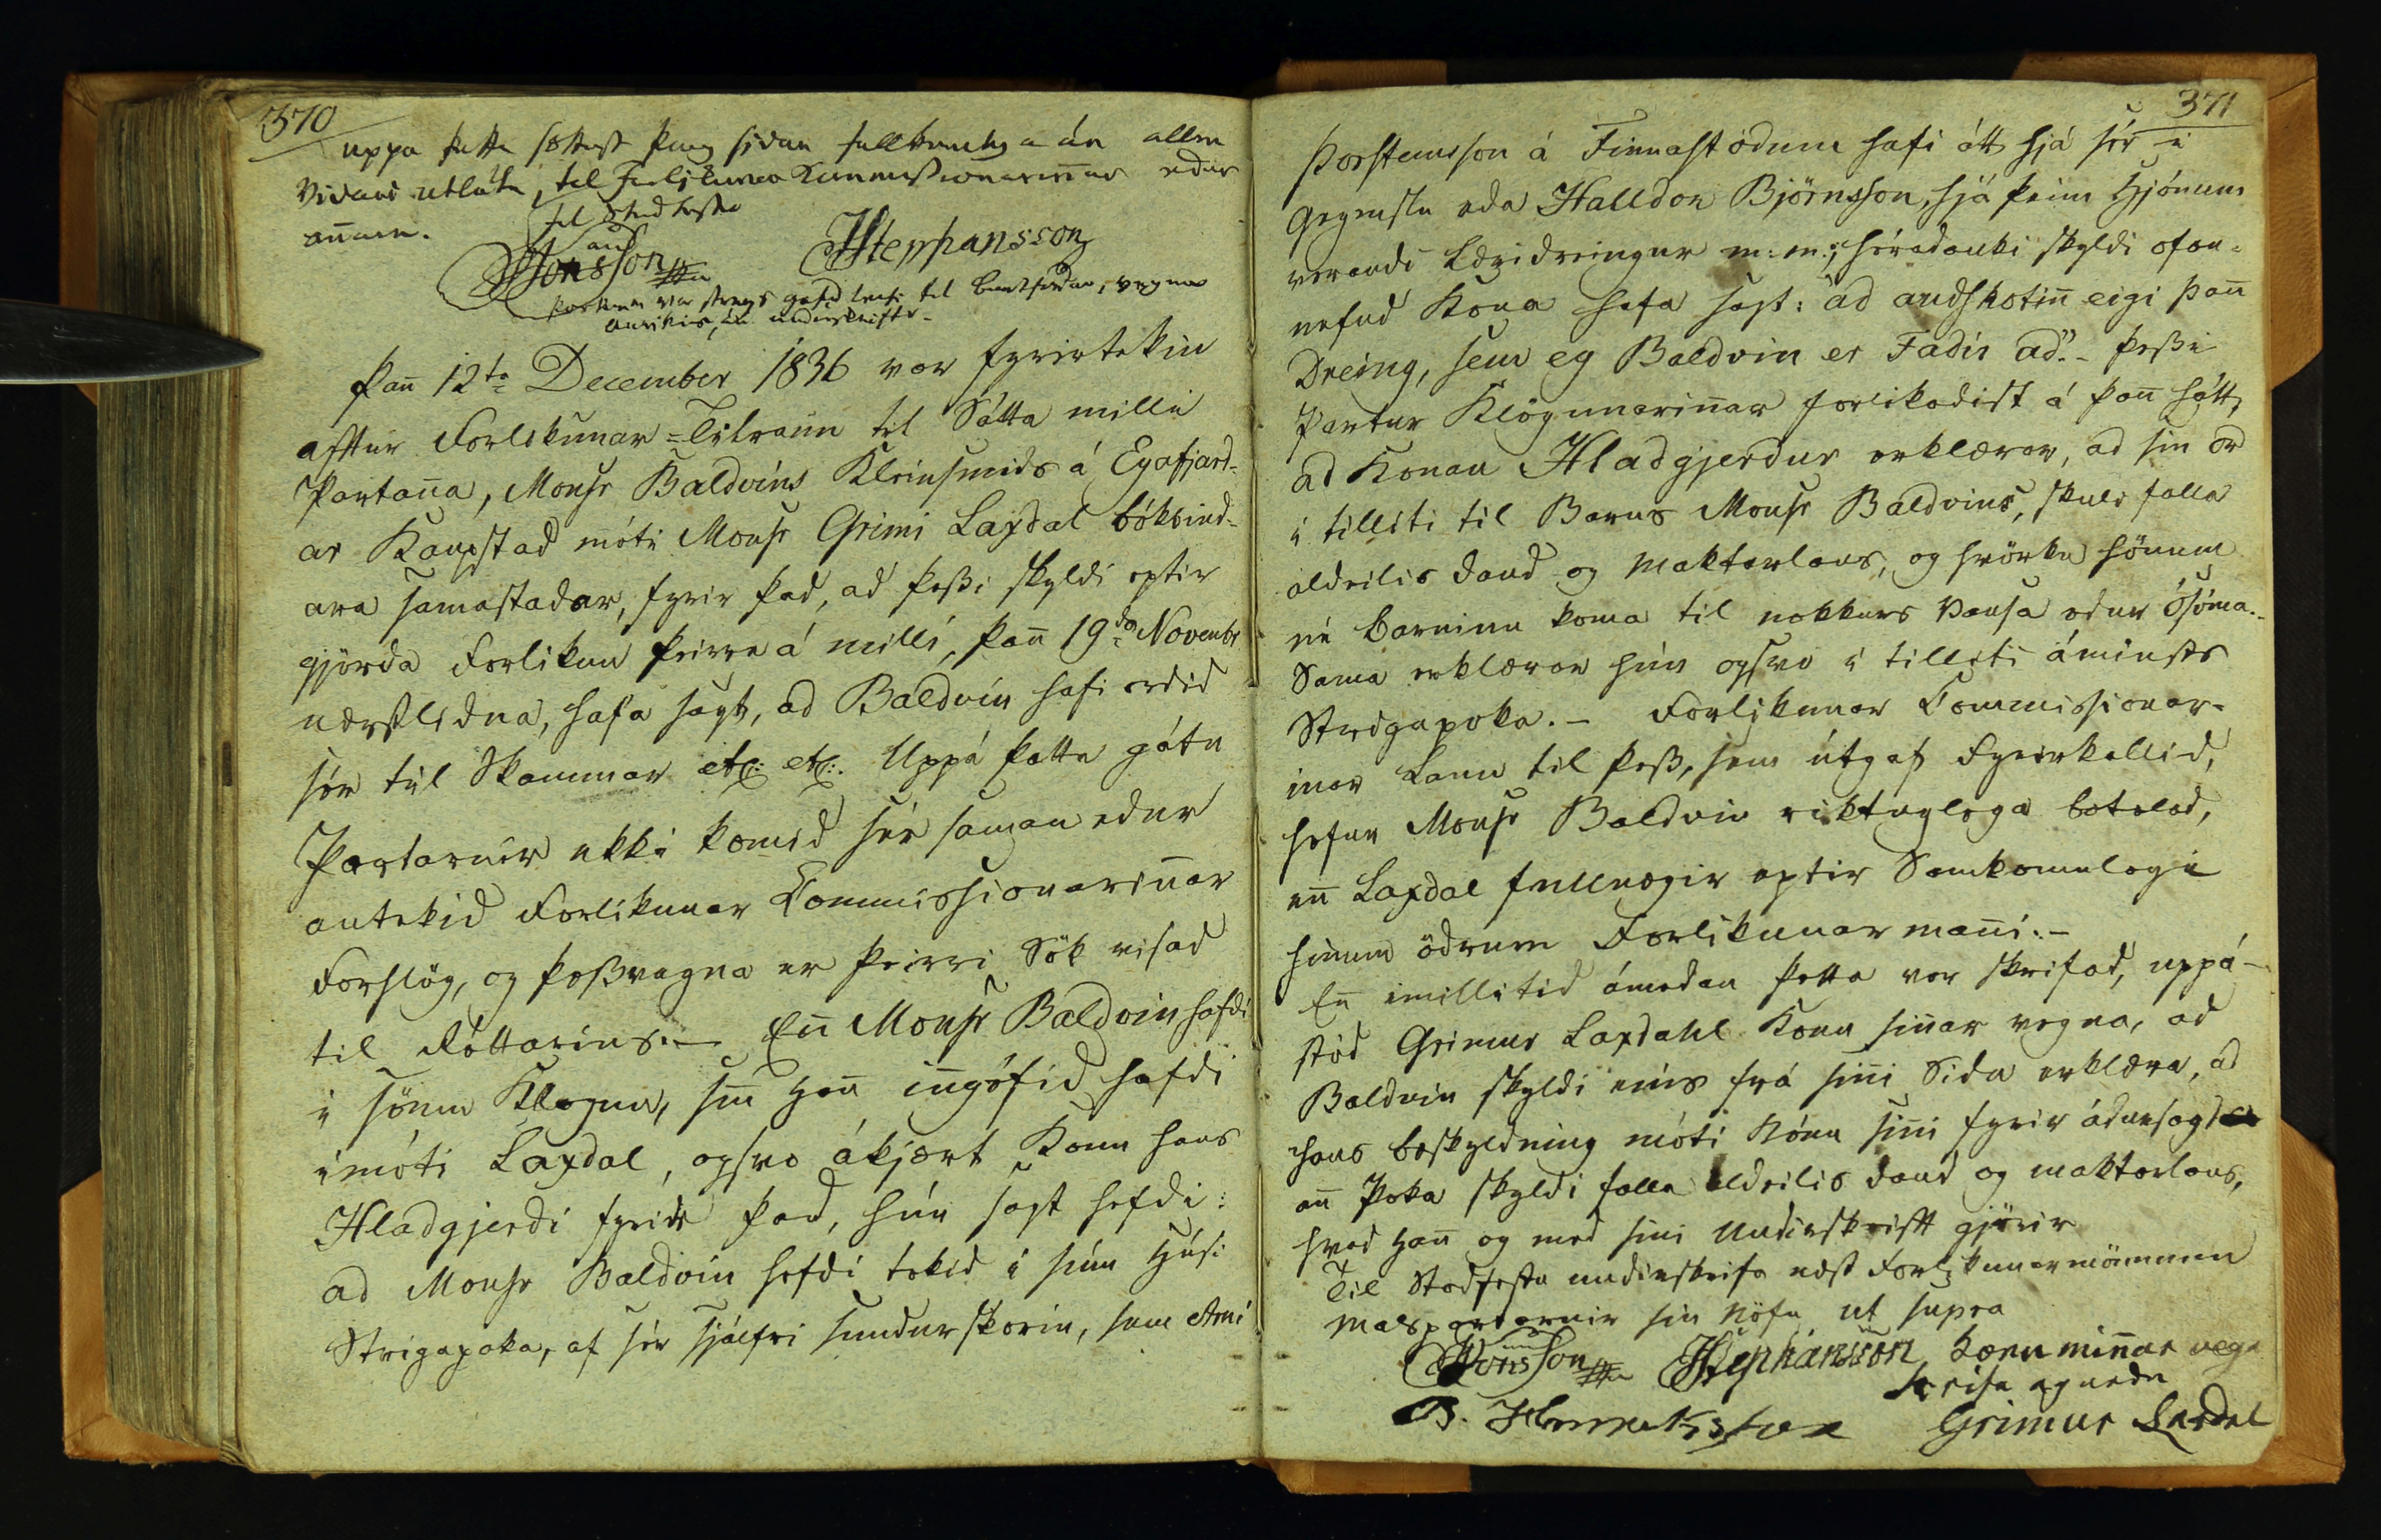 370
uppá þetta sættast þaug sidan fullkomlega án allra
vidari útláta, til Forlikunar Kommissionarinnar edur
annara.
til Stadfestu
JJónsson HStephansson
Partunum var strags gefid leifi til burtferdar, vegna
án underskriftar.
Þan̄ 12ta December 1836 var fyrirtekin
afftur Forlikunar-Tilraun til Sátta milli
Partan̄a, Monsr Baldvins Kleinsmids á Eyafjard-
ar Kaupstad móti Monsr Grimi Laxdal bókbind-
ara samastadar, fyrir það, ad þeßi skyldi eptir
gjörda Forlikun þeirra á milli, þan̄ 19da Novembr
næstlidna, hafa sagt, ad Baldvin hafi ordid
sér til Skammar etc: etc:. Uppá þetta gátu
Partarnir ekki komid sér saman edur
antekid Forlikunar Commissionarin̄ar
Forslög, og þeßvegna er þeirri Sök visad
til Réttarins. — En̄ Monsr Baldvin hafdi
i sömu Kløgun, sem Han̄ in̄gefid hafdi
imóti Laxdal, ogsvo ákjært Konu hans
Hladgjerdi fyrir það, hún sagt hefdi:
ad Monsr Baldvin hefdi tekid i sinu Húsi
Strigapoka, af sér sjálfri sundurskorin, sem Arni
371
Þorsteinsson á Finnastödum hafi átt hjá sér i
Geymslu eda Halldor Björnsson, hjá þeim Hjónum
verandi Læridreingur m: m:; héradauki skyldi ofan-
nefnd Kona hafa sagt: "ad andskotin̄ eigi þan̄
Dreing, sem eg Baldvin er Fadir ad". — Þeßi
Partur Klögunarin̄ar forlikadist á þan̄ hátt,
ad Konan Hladgjerdur erklærar, ad sin ord
i tilliti til Barns Monsr Baldvins, skuli falla
aldeilis daud og maktarlaus, og hvörki hönum
né barninu koma til nokkurs Vansa edur ósóma.
Sama erklærar hún ogsvo i tilliti áminsts
Strigapoka. — Forlikunar Commissionar-
inar Laun til þeß, sem útgaf Fyrirkallid,
hefur Monsr Baldvin riktuglega betalad,
en̄ Laxdal fullnægir eptir Samkomulagi
hinum ödrum Forlikunarman̄i. —
En̄ imillitid ámedan þetta var skrifad, uppá-
stód Grimur Laxdahl Konu sin̄ar vegna, ad
Baldvin skyldi eins frá sin̄i Sidu erklæra, ad
hans beskyldning móti Kónu sin̄i fyrir ádursagd
an̄ Poka skyldi falla aldeilis daud og maktarlaus,
hvad Han̄ og med sini Underskrift gjörir
Til Stadfestu underskrifa næst Forlikunarmönnum
Malspartarnir sin Nöfn ut supra
JJónsson HStephánsson Konu min̄ar vegna
skrifa eg nedan
B. Hinriksson Grimur Laxdal